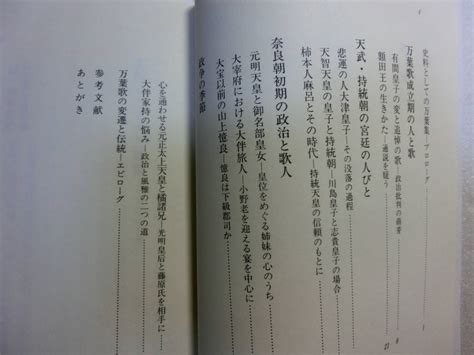 史料としての万葉集―プロローグ
万葉歌成立期の人と歌
有間皇子の変と追悼の歌―政治批判の萌芽
額田王の生きかた―通説を疑う
天武・持統朝の宮廷の人びと
悲運の人大津皇子―その没落の過程
天智天皇の皇子と持統朝―川島皇子と志貴皇子の場合
柿本人麻呂とその時代―持統天皇の信頼のもとに
奈良朝初期の政治と歌人
元明天皇と御名部皇女―皇位をめぐる姉妹の心のうち
大宰府における大伴旅人―小野老を迎える宴を中心に
大宝以前の山上憶良―憶良は下級郡司か
政争の季節
心を通わせる元正太上天皇と橘諸兄―光明皇后と藤原氏を相手に
大伴家持の悩み―政治と風雅の二つの道
万葉歌の変遷と伝統―エピローグ
参考文献
あとがき